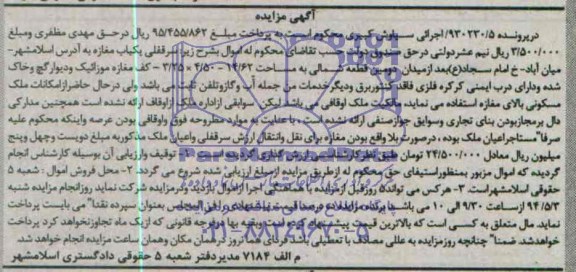 آگهی مزایده
درپرونده ۹۳۰۲۳۰/۵ اجرائی محکوم است به پرداخت مبلغ ۹۵/۴۵۵/۸۶۲ ریال درحق مهدی مظفری ومبلغ
۳/۵۰۰/۰۰۰ ریال نیم عشردولتی درحق صندوق دولت حسب تقاضای محکوم له اموال بشرح زیر: سرقفلی یکباب مغازه به آدرس اسلامشهر-
میان آباد- خ امام سجاد(ع) بعد ازمیدان- دومین قطعه شمالی به مساحت ۱۴/۶۲ - کف مغازه موزائیک ودیوار گچ وخاک
شده ودارای درب ایمنی کرکره فلزی فاقد کنتوربرق ودیگرخدمات من جمله آب وگازوتلفن ثابت می باشد ولی درحال حاضرازامکانات ملک
مسکونی بالای مغازه استفاده می نماید، مالکیت ملک اوقافی می باشد لیکن سوابقی ازاداره ملک ازاوقاف ارائه نشده است همچنین مدارکی
دال برمجازبودن بنای تجاری وسوابق جوازصنفی ارائه نشده است، با عنایت به موارد مطروحه فوق واوقافی بودن عرصه واینکه محکوم علیه
صرفا" مستاجراعیان ملک بوده، درصورت بلا واقع بودن مغازه برای نقل وانتقال ارزش سرقفلی واعیان ملک مذکوربه مبلغ دویست وچهل وپنج
میلیون ریال معادل ۲۴/۵۰۰/۰۰۰ تومان طبق نظر کارشناس توقیف وارزیابی آن بوسیله کارشناس انجام
گردیده که اموال مزبور بمنظوراستیفای حق محکوم له ازطریق مزایده ازمبلغ ارزیابی شده شروع می گردد ۲- محل فروش اموال: شعبه ۵
حقوقی اسلامشهراست. ۳- هرکس می تواند۵ روزقبل ازمزایده با هماهنگی اجرا ازاموال بازدید ودرمزایده شرکت نماید روزانجام مزایده شنبه
۹۴/۵/۳ ازساعت ۹:۳۰ الی ۱۰ می باشد بعنوان سپرده نقدا" می بایست پرداخت
نماید. مال متعلق به کسی است که بالاترین قیمت وفرجه قانونی که ازیک ماه تجاوزنخواهد کرد پرداخت
خواهدشد. ضمنا" چنانچه روزمزایده به عللی مصادف با تعطیلی باشد فردای همانروز درهمان مکان وهمان ساعت مزایده انجام خواهد شد.
م الف ۷۱۸۴ مدیردفتر شعبه ۵ حقوقی دادگستری اسلامشهر
ParsNamadData
۰۲۱-۸۸۳۴۹۶۷۰-۵